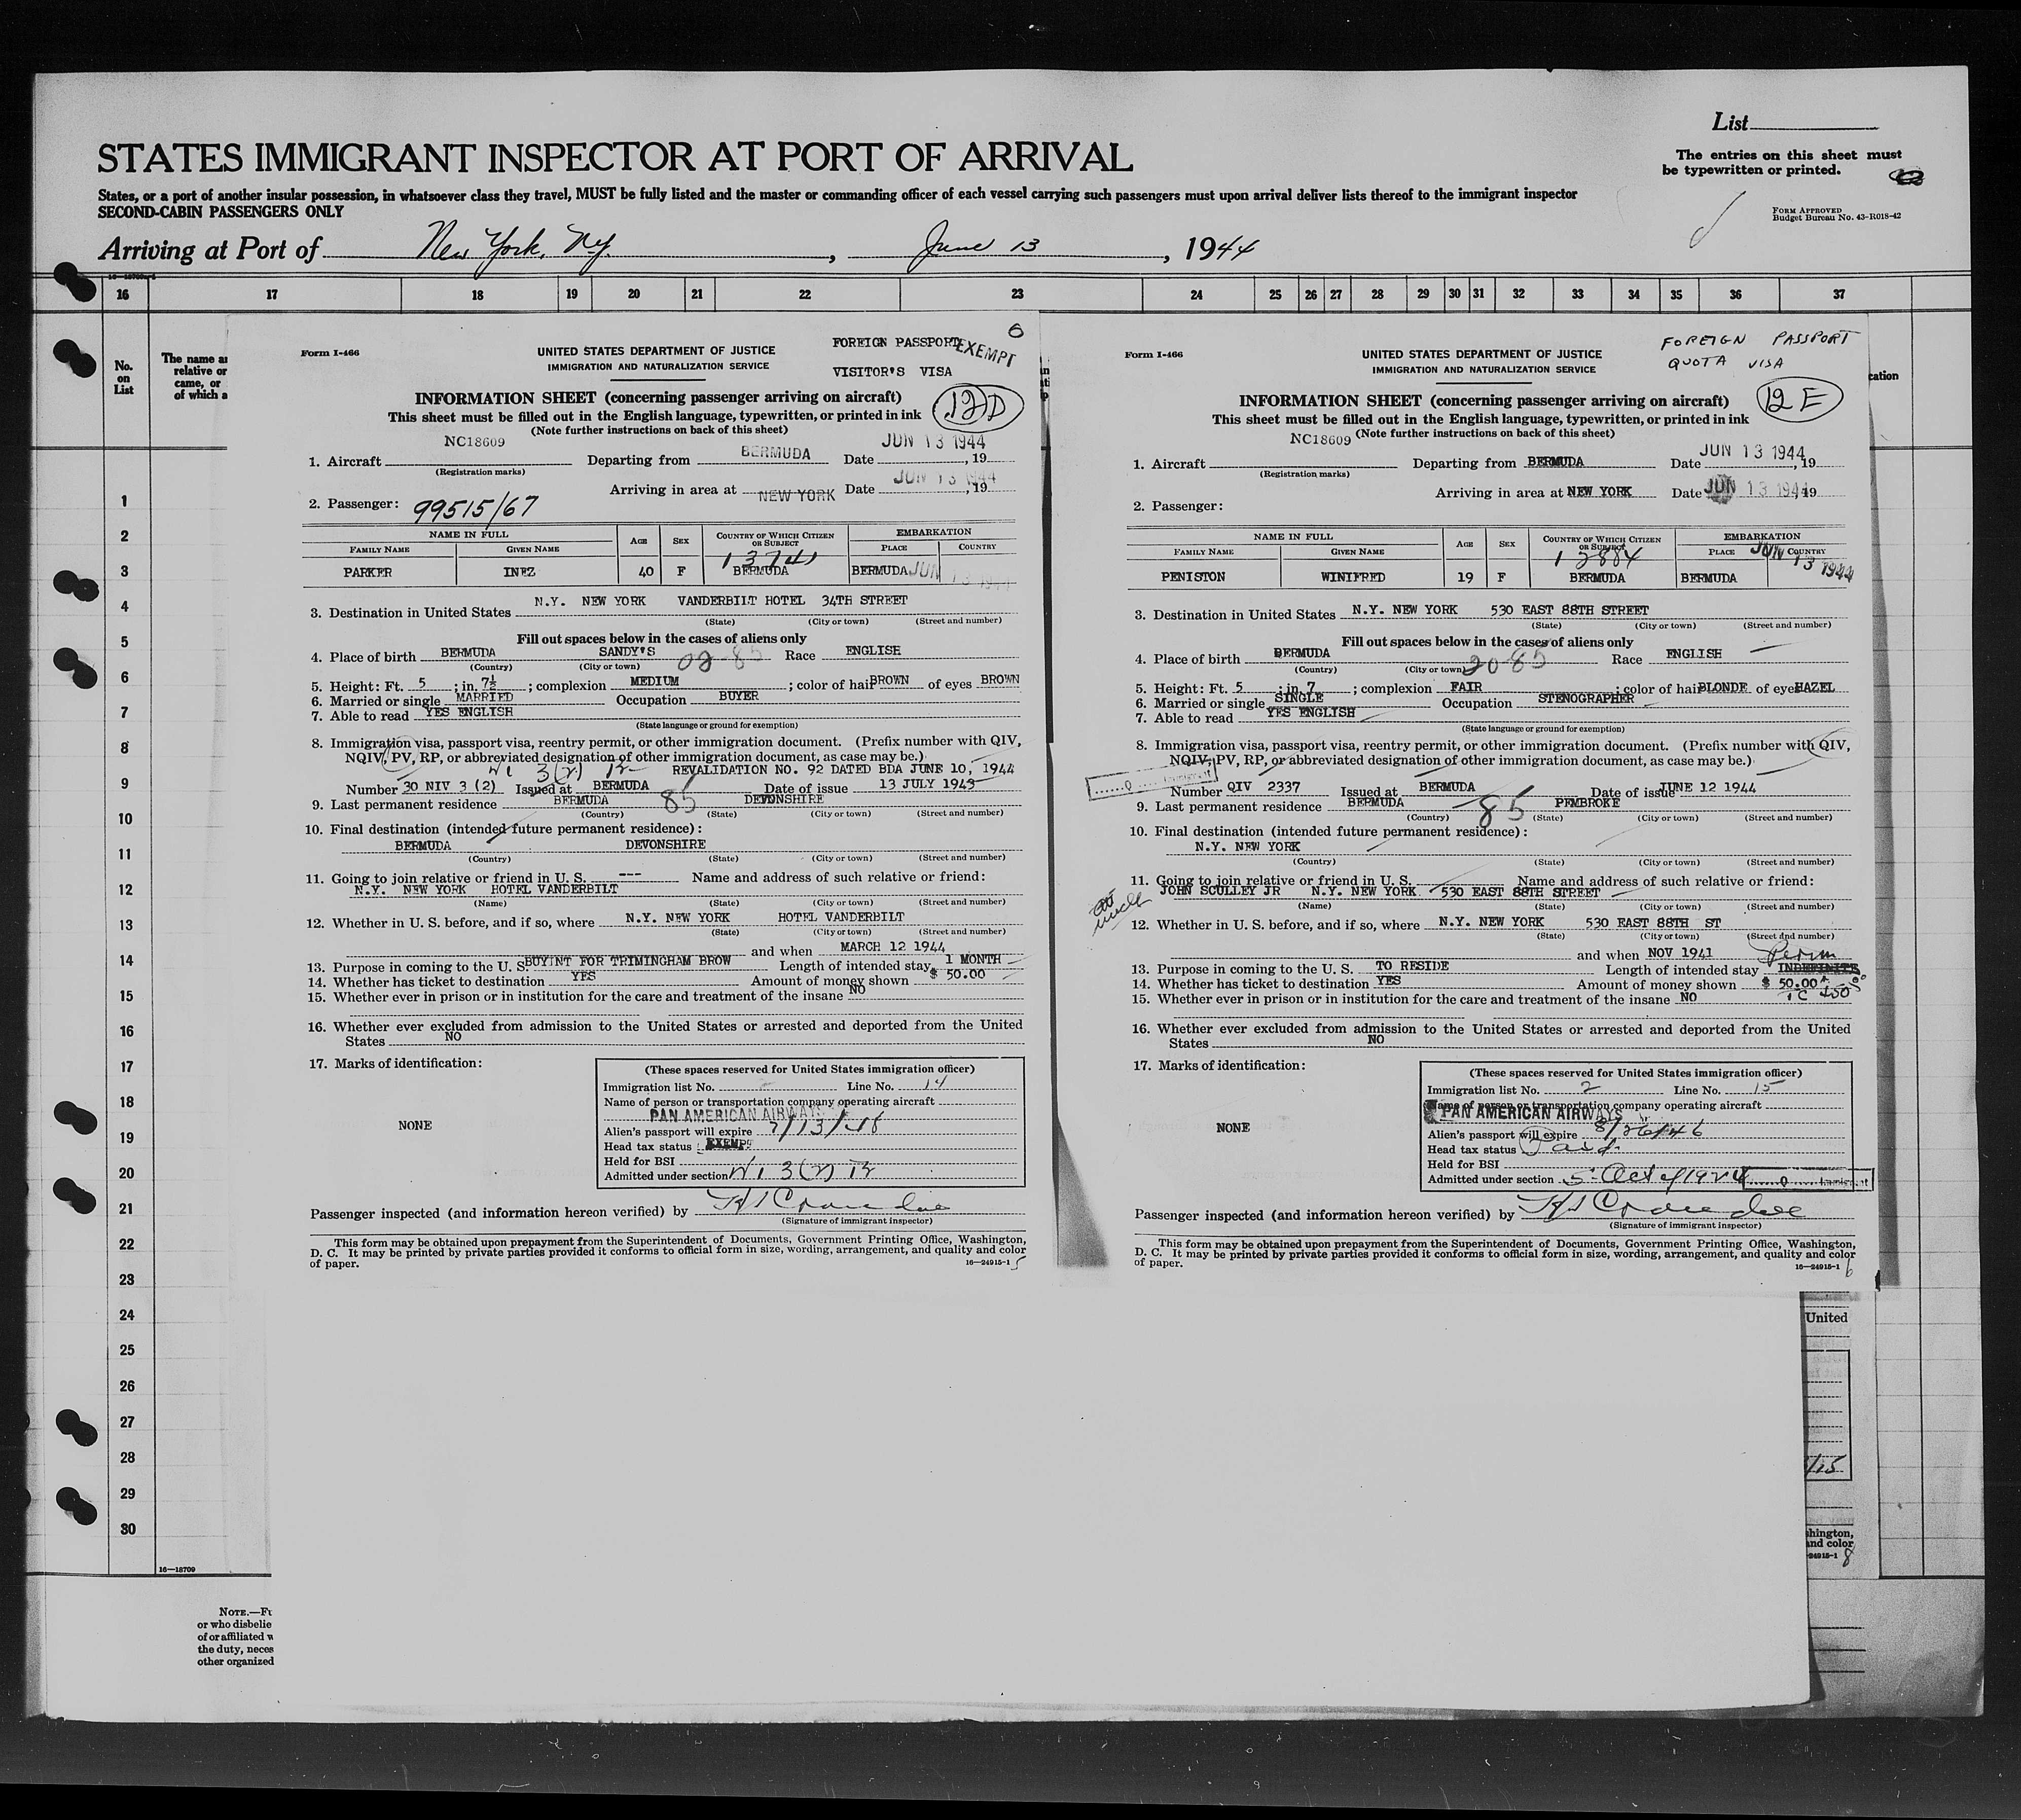 List
STATES IMMIGRANT INSPECTOR AT PORT OF ARRIVAL
The entries on this sheet must
be typewritten or printed.
States, or a port of another insular possession, in whatsoever class they travel, MUST be fully listed and the master or commanding officer of each vessel carrying such passengers must upon arrival deliver lists thereof to the immigrant inspector
SECOND-CABIN PASSENGERS ONLY
FORM APPROVED
Budget Bureau No. 43-R018-42
Arriving at Port of New York, N.Y. , June 13 , 1944
16 17 18 19 20 21 22 23 24 25 26 27 28 29 30 31 32 33 34 35 36 37
No.
on
List
The name a
relative or
came, or
of which a
1
2
3
4
5
6
7
8
9
10
11
12
13
14
15
16
17
18
19
20
21
22
23
24
25
26
27
28
29
30
16—18709
NOTE.—Fu
or who disbelie
of or affiliated w
the duty, neces
other organized
6
Form I-466
UNITED STATES DEPARTMENT OF JUSTICE
IMMIGRATION AND NATURALIZATION SERVICE
FOREIGN PASSPORT EXEMPT
VISITOR'S VISA
INFORMATION SHEET (concerning passenger arriving on aircraft)
12D
This sheet must be filled out in the English language, typewritten, or printed in ink
(Note further instructions on back of this sheet)
1. Aircraft NC18609 Departing from BERMUDA Date JUN 13 1944 , 19
(Registration marks)
Arriving in area at NEW YORK Date JUN 13 1944 , 19
2. Passenger: 99515/67
NAME IN FULL AGE SEX COUNTRY OF WHICH CITIZEN OR SUBJECT EMBARKATION
FAMILY NAME GIVEN NAME PLACE COUNTRY
13741
PARKER INEZ 40 F BERMUDA BERMUDA JUN 13 1944
3. Destination in United States N.Y. NEW YORK VANDERBILT HOTEL 34TH STREET
(State) (City or town) (Street and number)
Fill out spaces below in the cases of aliens only
4. Place of birth BERMUDA SANDY'S 02-85 Race ENGLISH
(Country) (City or town)
5. Height: Ft. 5 ; in. 7½ ; complexion MEDIUM ; color of hair BROWN of eyes BROWN
6. Married or single MARRIED Occupation BUYER
7. Able to read YES ENGLISH
(State language or ground for exemption)
8. Immigration visa, passport visa, reentry permit, or other immigration document. (Prefix number with QIV,
NQIV, PV, RP, or abbreviated designation of other immigration document, as case may be.)
3(2) REVALIDATION NO. 92 DATED BDA JUNE 10, 1944
Number 30 NIV 3 (2) Issued at BERMUDA Date of issue 13 JULY 1943
9. Last permanent residence BERMUDA 85 DEVONSHIRE
(Country) (State) (City or town) (Street and number)
10. Final destination (intended future permanent residence):
BERMUDA DEVONSHIRE
(Country) (State) (City or town) (Street and number)
11. Going to join relative or friend in U. S. --- Name and address of such relative or friend:
N.Y. NEW YORK HOTEL VANDERBILT
(Name) (State) (City or town) (Street and number)
12. Whether in U. S. before, and if so, where N.Y. NEW YORK HOTEL VANDERBILT
(State) (City or town) (Street and number)
and when MARCH 12 1944
13. Purpose in coming to the U. S. BUYINT FOR TRIMINGHAM BROW Length of intended stay 1 MONTH
14. Whether has ticket to destination YES Amount of money shown $ 50.00
15. Whether ever in prison or in institution for the care and treatment of the insane NO
16. Whether ever excluded from admission to the United States or arrested and deported from the United
States NO
17. Marks of identification:
NONE
(These spaces reserved for United States immigration officer)
Immigration list No. Line No. 14
Name of person or transportation company operating aircraft
PAN AMERICAN AIRWAYS
Alien's passport will expire 7/13/48
Head tax status EXEMPT
Held for BSI
Admitted under section 3(2)
Passenger inspected (and information hereon verified) by
(Signature of immigrant inspector)
This form may be obtained upon prepayment from the Superintendent of Documents, Government Printing Office, Washington,
D. C. It may be printed by private parties provided it conforms to official form in size, wording, arrangement, and quality and color
of paper.
16—24915-1 5
Form I-466
UNITED STATES DEPARTMENT OF JUSTICE
IMMIGRATION AND NATURALIZATION SERVICE
FOREIGN PASSPORT
QUOTA VISA
INFORMATION SHEET (concerning passenger arriving on aircraft)
12E
This sheet must be filled out in the English language, typewritten, or printed in ink
(Note further instructions on back of this sheet)
1. Aircraft NC18609 Departing from BERMUDA Date JUN 13 1944 , 19
(Registration marks)
Arriving in area at NEW YORK Date JUN 13 1944 , 19
2. Passenger:
NAME IN FULL AGE SEX COUNTRY OF WHICH CITIZEN OR SUBJECT EMBARKATION
FAMILY NAME GIVEN NAME PLACE COUNTRY
12884 JUN 13 1944
PENISTON WINIFRED 19 F BERMUDA BERMUDA
3. Destination in United States N.Y. NEW YORK 530 EAST 88TH STREET
(State) (City or town) (Street and number)
Fill out spaces below in the cases of aliens only
4. Place of birth BERMUDA 20-85 Race ENGLISH
(Country) (City or town)
5. Height: Ft. 5 ; in. 7 ; complexion FAIR ; color of hair BLONDE of eyes HAZEL
6. Married or single SINGLE Occupation STENOGRAPHER
7. Able to read YES ENGLISH
(State language or ground for exemption)
8. Immigration visa, passport visa, reentry permit, or other immigration document. (Prefix number with QIV,
NQIV, PV, RP, or abbreviated designation of other immigration document, as case may be.)
Number QIV 2337 Issued at BERMUDA Date of issue JUNE 12 1944
9. Last permanent residence BERMUDA 85 PEMBROKE
(Country) (State) (City or town) (Street and number)
10. Final destination (intended future permanent residence):
N.Y. NEW YORK
(Country) (State) (City or town) (Street and number)
11. Going to join relative or friend in U. S. Name and address of such relative or friend:
JOHN SCULLEY JR N.Y. NEW YORK 530 EAST 88TH STREET
(Name) (State) (City or town) (Street and number)
uncle
12. Whether in U. S. before, and if so, where N.Y. NEW YORK 530 EAST 88TH ST
(State) (City or town) (Street and number)
and when NOV 1941 Perm
13. Purpose in coming to the U. S. TO RESIDE Length of intended stay INDEFINITE
14. Whether has ticket to destination YES Amount of money shown $ 50.00
15. Whether ever in prison or in institution for the care and treatment of the insane NO
16. Whether ever excluded from admission to the United States or arrested and deported from the United
States NO
17. Marks of identification:
NONE
(These spaces reserved for United States immigration officer)
Immigration list No. 2 Line No. 15
Name of person or transportation company operating aircraft
PAN AMERICAN AIRWAYS
Alien's passport will expire 8/26/46
Head tax status Paid
Held for BSI
Admitted under section 5 Oct 4/1924 0 Immigrant
Passenger inspected (and information hereon verified) by
(Signature of immigrant inspector)
This form may be obtained upon prepayment from the Superintendent of Documents, Government Printing Office, Washington,
D. C. It may be printed by private parties provided it conforms to official form in size, wording, arrangement, and quality and color
of paper.
16—24915-1 6
cation
United
hington,
and color
24915-1 8